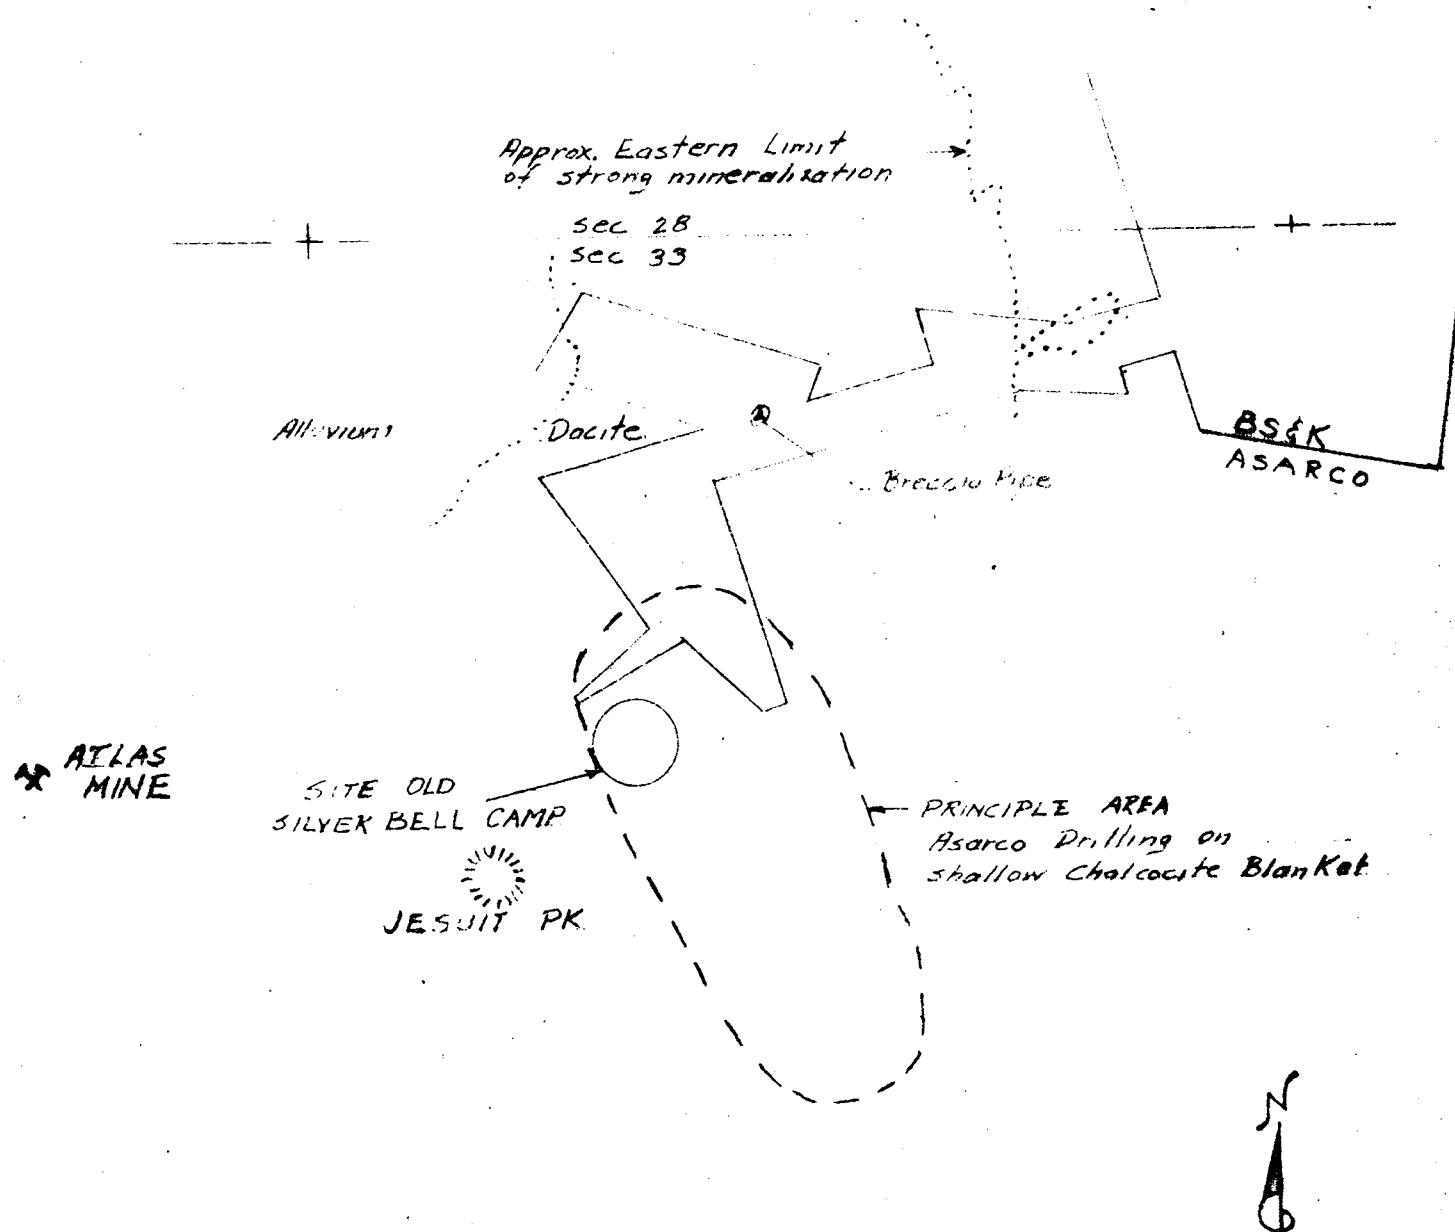 Approx. Eastern Limit
of strong mineralization
sec 28
sec 33
Alluvium
Dacite
BS&K
ASARCO
Breccia Pipe
ATLAS
MINE
SITE OLD
SILVER BELL CAMP
PRINCIPLE AREA
Asarco Drilling on
shallow Chalcocite Blanket
JESUIT PK
N